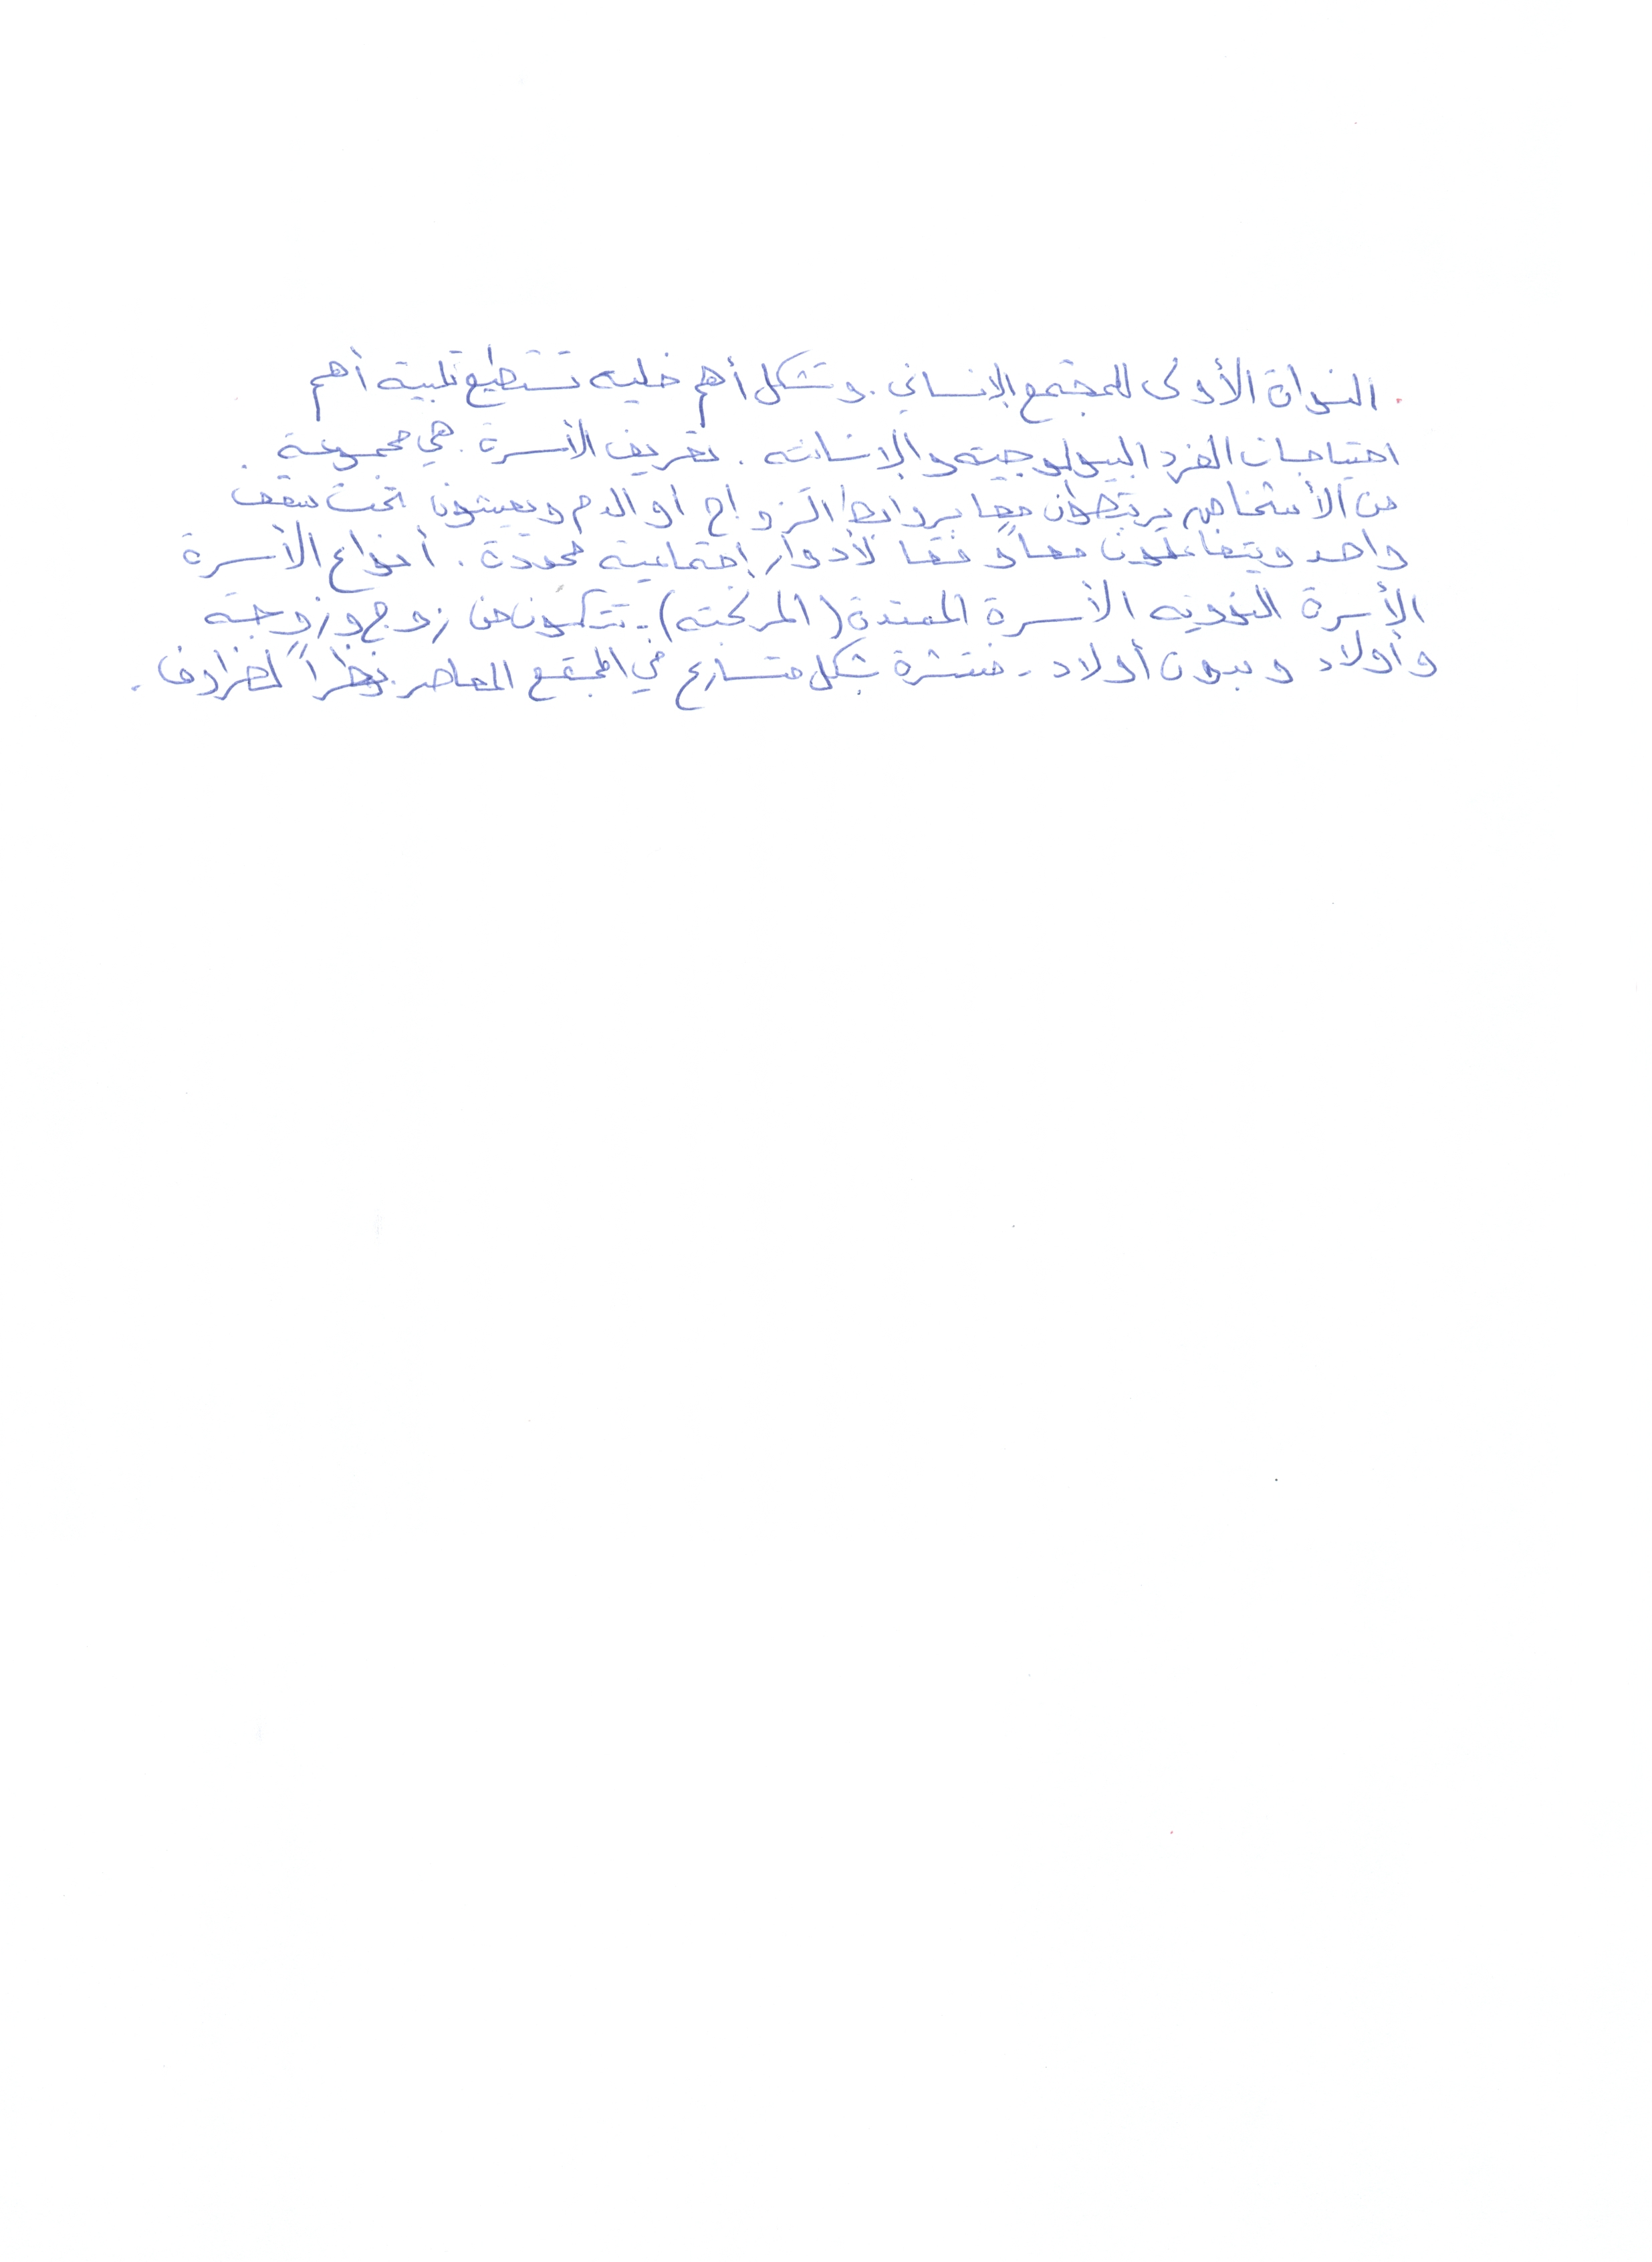 النواة الأولى للمجتمع الإنساني. وتشكل أهم خليه تستطيع تلبية أهم
احتياجات الفرد البيولوجيته والإنسانيه. تعريف الأسرة. هي مجموعة.
من الأشخاص يرتبطون معا بروابط الزواج او الدم ويعيشون تحت سقف
واحد ويتفاعلون معاً وفقا لأدوار إجتماعية محددة. أنواع الأسرة
الأسرة النوويه الأسرة الممتدة (المركبته) - تتكون من زوج وزوجة
وأولاد وبدون أولاد - منتشرة بشكل متسارع في المجتمع المعاصر. نظراً لظروف.